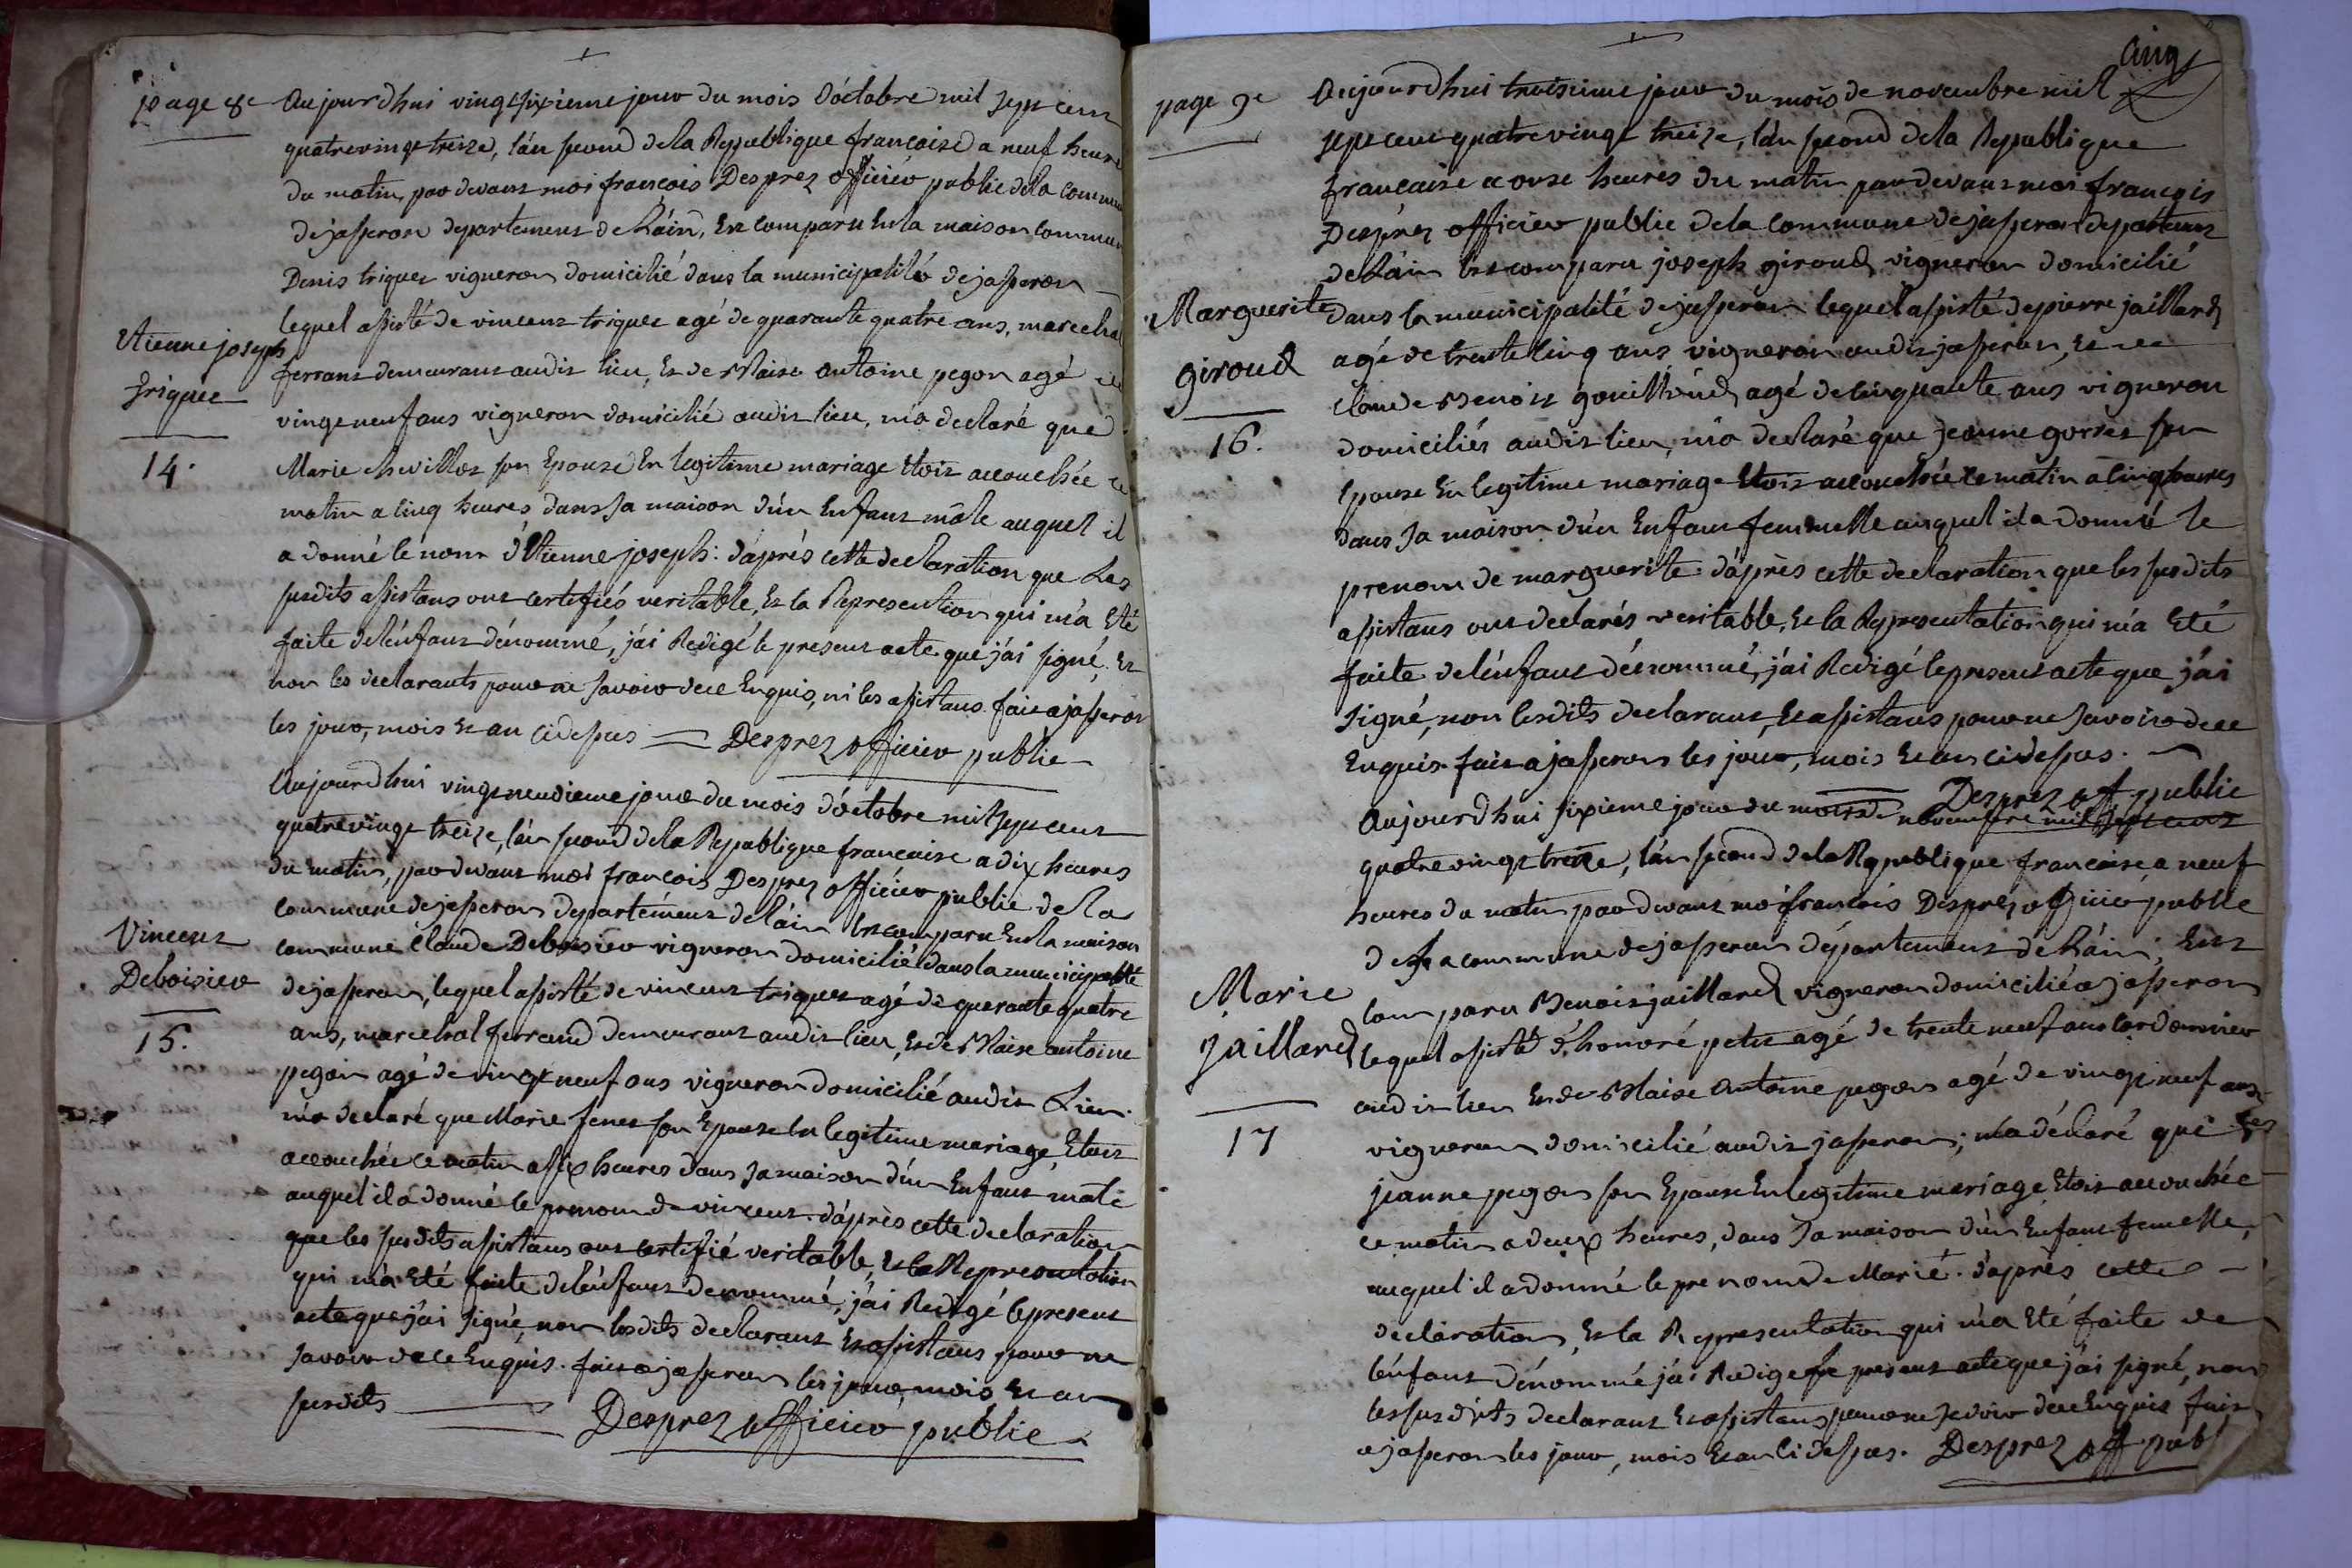 page 8e
Aujourd'hui vingt sixieme jour du mois d'octobre mil sept cent
quatrevingt treize, l'an second de la Republique francaise a neuf heures
du matin, par devant moi francois Desprez officier public de la commune
de jasseron departement de L'ain, Est comparu En la maison commune
Denis triquet vigneron domicilié dans la municipalité de jasseron
lequel assisté de vincent triquet agé de quarante quatre ans, marechal
Etienne joseph
triquet
14.
ferrant demeurant audit lieu, Et de Blaise antoine pegon agé de
vingt neuf ans vigneron domicilié audit lieu, m'a declaré que
Marie chevillot son Epouse En legitime mariage Etoit accouchée ce
matin a cinq heures dans sa maison d'un Enfant mâle auquel il
a donné le nom d'Etienne joseph: d'après cette declaration que Les
susdits assistans ont certifiés veritable, Et la Representation qui m'a Eté
faite de l'enfant dénommé, j'ai Redigé le present acte que j'ai signé, Et
non les declarants pour ne savoir de ce Enquis, ni les assistans. fait a jasseron
les jour, mois Et an ci dessus Desprez officier public
Aujourd'hui vingt neuvieme jour du mois d'octobre mil sept cent
quatrevingt treize, l'an second de la Republique francaise a dix heures
du matin, par devant moi francois Desprez officier public de la
commune de jasseron departement de l'ain Est comparu En la maison
Vincent
Deboisier
15.
commune Claude Deboisier vigneron domicilié dans la municipalité
de jasseron, lequel assisté de vincent triquet agé de quarante quatre
ans, marechal ferrand demeurant audit lieu, Et de Blaise antoine
pegon agé de vingt neuf ans vigneron domicilié audit Lieu.
m'a declaré que Marie fenet son Epouse En legitime mariage, Etoit
accouchée ce matin a six heures dans sa maison d'un Enfant male
auquel il a donné le prenom de vincent. d'après cette declaration
que les susdits assistans ont certifié veritable, Et la Representation
qui m'a Eté faite de l'enfant denommé, j'ai Redigé le present
acte que j'ai signé, non lesdits declarant Et assistans pour ne
savoir de ce Enquis. fait a jasseron les jour, mois Et an
susdits Desprez officier public
cinq
page 9e
Aujourd'hui troisieme jour du mois de novembre mil
sept cent quatrevingt treize, l'an second de la Republique
francaise a onze heures du matin par devant moi francois
Desprez officier public de la commune de jasseron departement
de L'ain Est comparu joseph giroud vigneron domicilié
Marguerite
giroud
16.
dans la municipalité de jasseron lequel assisté de pierre jaillard
agé de trente cinq ans vigneron audit jasseron, Et de
Claude Benoit gouilloud, agé de cinquante ans vigneron
domiciliés audit lieu, m'a declaré que jeanne gorret son
Epouse En legitime mariage Etoit accouchée ce matin a cinq heures
dans sa maison d'un Enfant femmelle auquel il a donné le
prenom de marguerite. d'après cette declaration que les susdits
assistans ont declarés veritable, Et la Representation qui m'a Eté
faite de l'enfant dénommé, j'ai Redigé le present acte que j'ai
signé, non lesdits declarant, Et assistans pour ne savoir de ce
Enquis. fait a jasseron les jour, mois Et an ci dessus.
Desprez off public
Aujourd'hui sixieme jour du mois de novembre mil sept cent
quatrevingt treize, l'an second de la Republique francaise, a neuf
heures du matin par devant moi francois Desprez officier public
de la commune de jasseron département de L'ain; Est
Marie
jaillard
17
comparu Benoit jaillard vigneron domicilié a jasseron
lequel assisté d'honoré petit agé de trente neuf ans cordonnier
audit lieu Et de Blaise Antoine pegon agé de vingt neuf ans
vigneron domicilié audit jasseron; m'a déclaré que
jeanne pegon son Epouse En legitime mariage Etoit accouchée
ce matin a deux heures, dans sa maison d'un Enfant femelle,
auquel il a donné le prenom de Marie. d'après cette
declaration, Et la Representation qui m'a Eté faite de
l'enfant dénommé j'ai Redigé le present acte que j'ai signé, non
les susdits declarant Et assistans pour ne savoir de ce Enquis fait
a jasseron les jour, mois Et an ci dessus. Desprez off publ